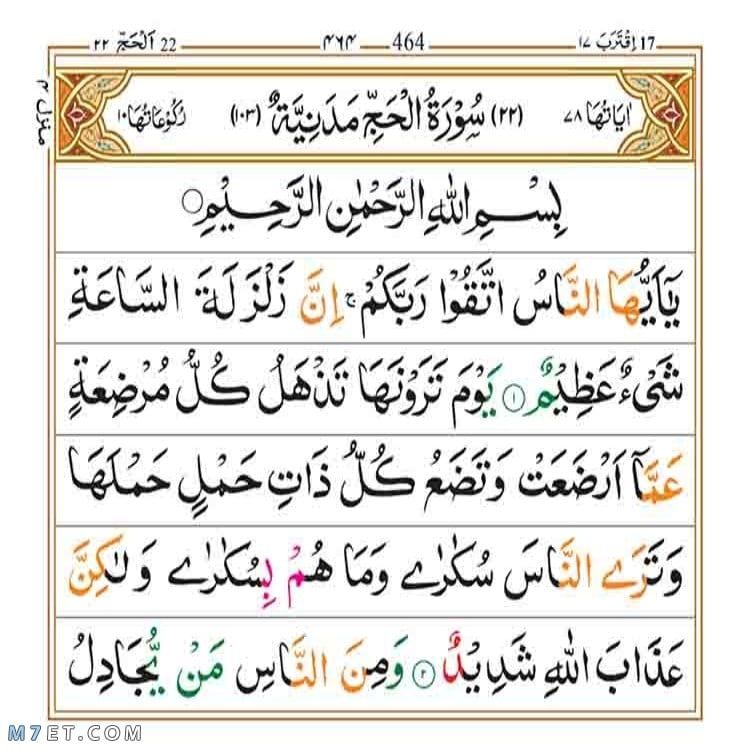 17 اِقْتَرَبَ ١٧ 464 ۴۶۴ 22 اَلْحَجّ ٢٢
منزل ۴
اٰيَاتُهَا ٧٨ (٢٢) سُوْرَةُ الْحَجِّ مَدَنِيَّةٌ (١٠٣) رُكُوْعَاتُهَا ١٠
بِسْمِ اللهِ الرَّحْمٰنِ الرَّحِيْمِ ○
يٰۤاَيُّهَا النَّاسُ اتَّقُوْا رَبَّكُمْ ۚ اِنَّ زَلْزَلَةَ السَّاعَةِ
شَىْءٌ عَظِيْمٌ ١ يَوْمَ تَرَوْنَهَا تَذْهَلُ كُلُّ مُرْضِعَةٍ
عَمَّاۤ اَرْضَعَتْ وَتَضَعُ كُلُّ ذَاتِ حَمْلٍ حَمْلَهَا
وَتَرَى النَّاسَ سُكٰرٰى وَمَا هُمْ بِسُكٰرٰى وَلٰكِنَّ
عَذَابَ اللهِ شَدِيْدٌ ٢ وَمِنَ النَّاسِ مَنْ يُّجَادِلُ
M7ET.COM